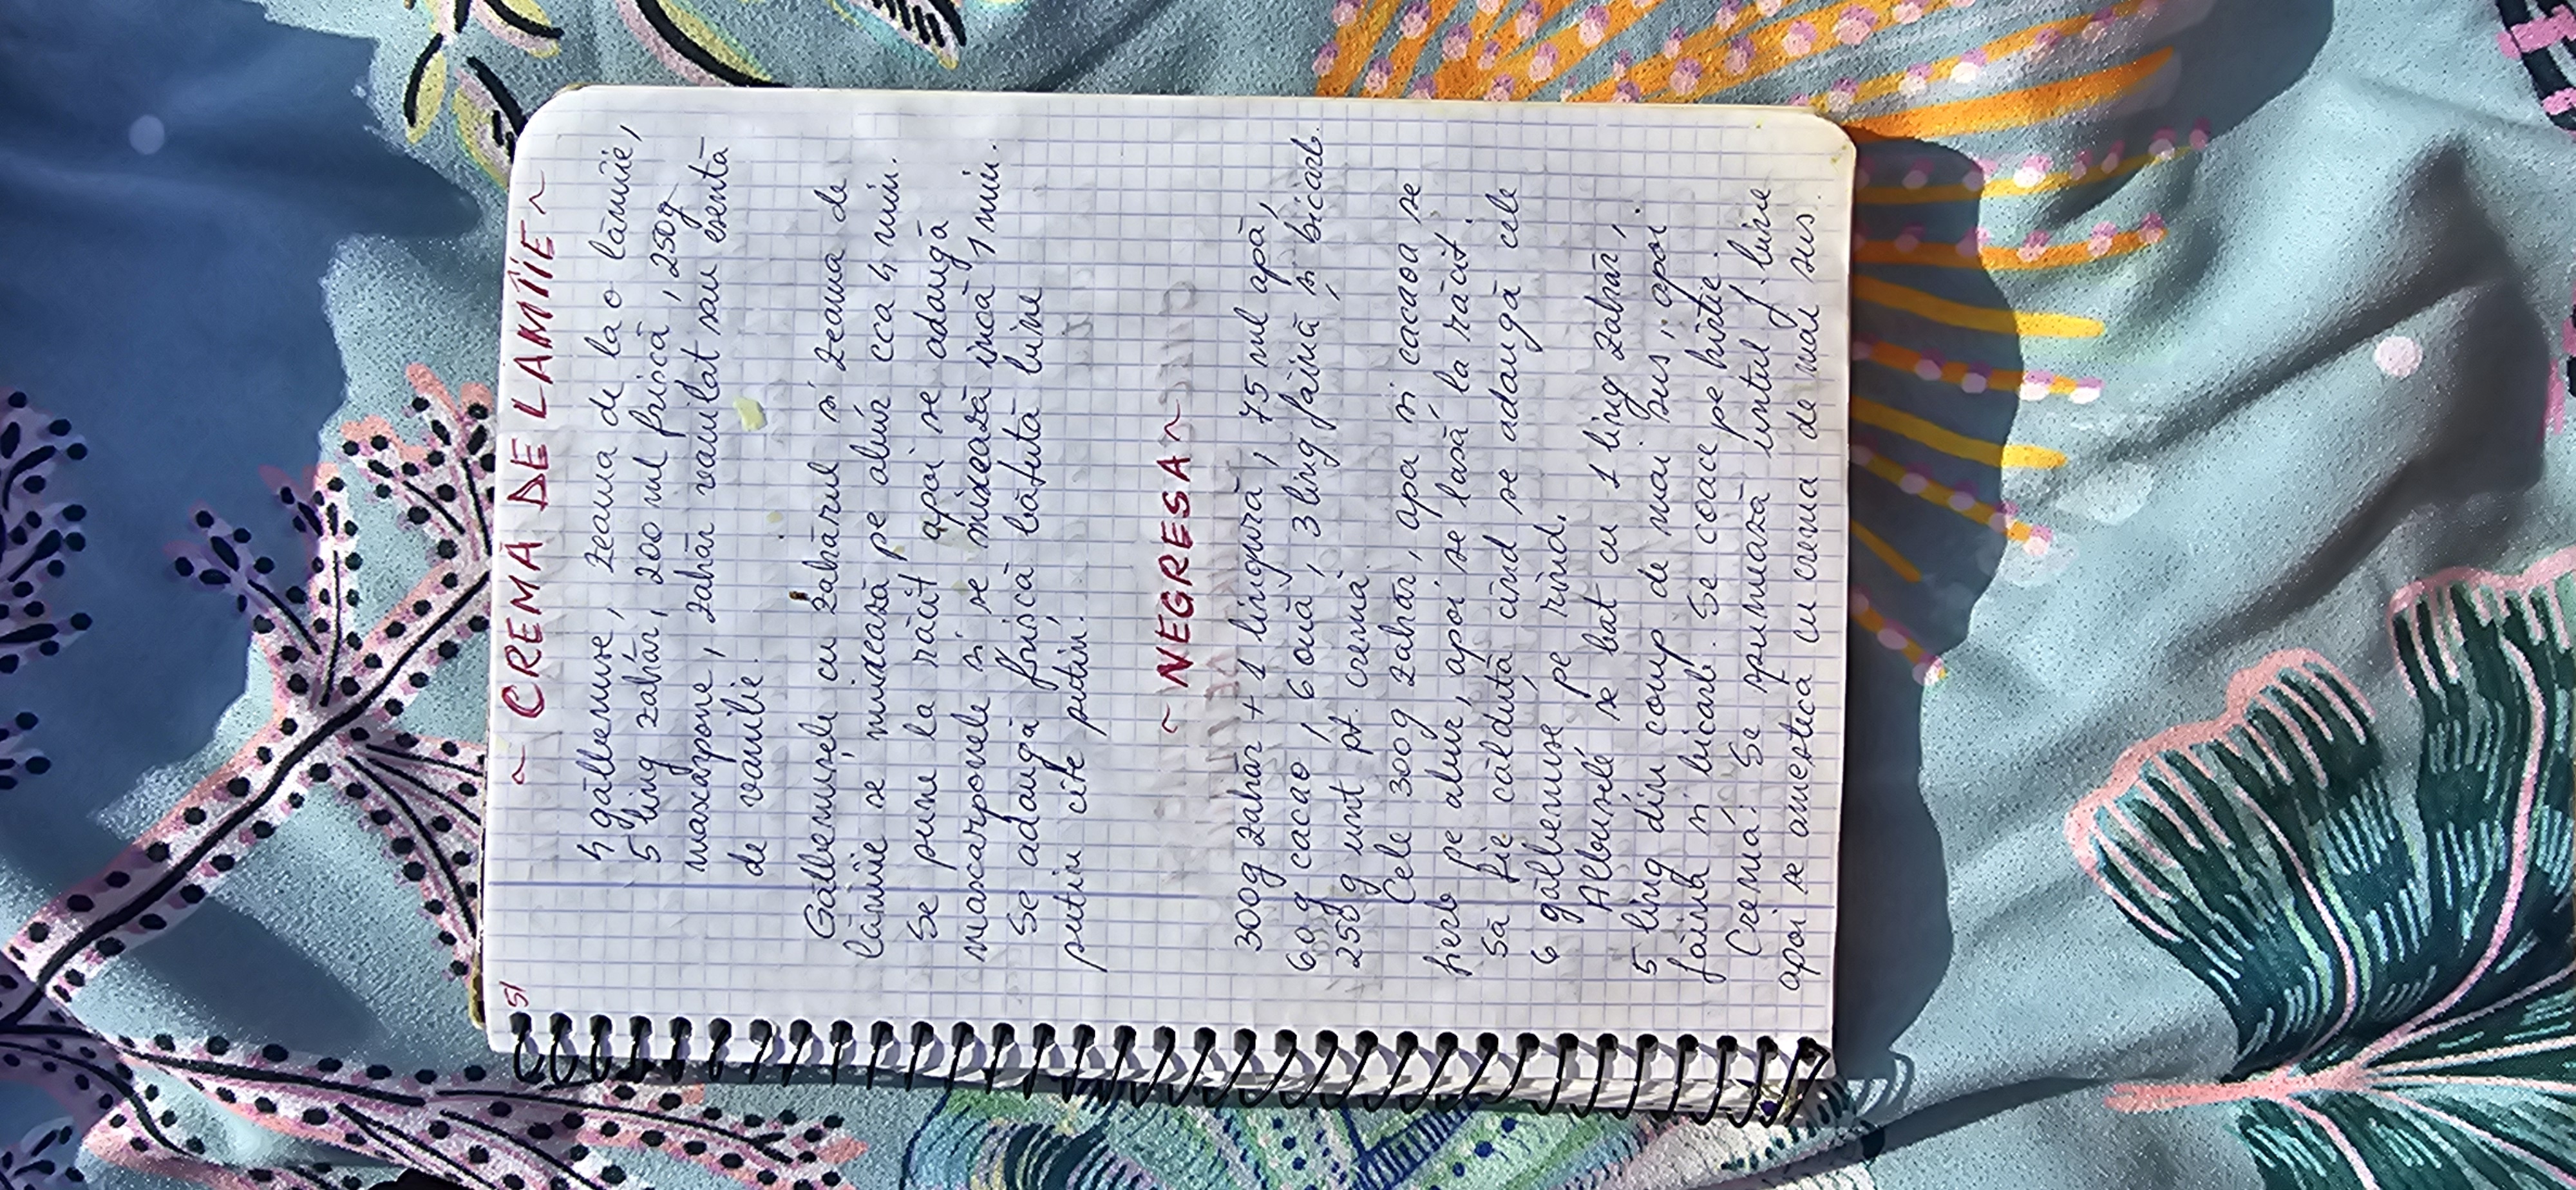 51
~ CREMĂ DE LĂMÎIE ~
4 gălbenușe, zeama de la o lămîie,
5 ling zahăr, 200 ml frișcă, 250g
mascarpone, zahăr vanilat sau esență
de vanilie.
Gălbenușele cu zahărul și zeama de
lămîie se mixează pe abur cca 4 min.
Se pune la răcit apoi se adaugă
mascarponele și se mixează încă 1 min.
Se adaugă frișcă bătută bine
puțin cîte puțin.
~ NEGRESA ~
300g zahăr + 1 lingură, 75 ml apă,
60 g cacao, 6 ouă, 3 ling făină și bicarb.
250 g unt pt. cremă.
Cele 300g zahăr, apa și cacaoa se
fierb pe abur, apoi se lasă la răcit.
Să fie călduță cînd se adaugă cele
6 gălbenușe pe rînd.
Albușele se bat cu 1 ling zahăr,
5 ling din comp de mai sus, apoi
făina și bicarb. Se coace pe hîrtie.
Crema: Se spumează untul f. bine
apoi se amestecă cu crema de mai sus.